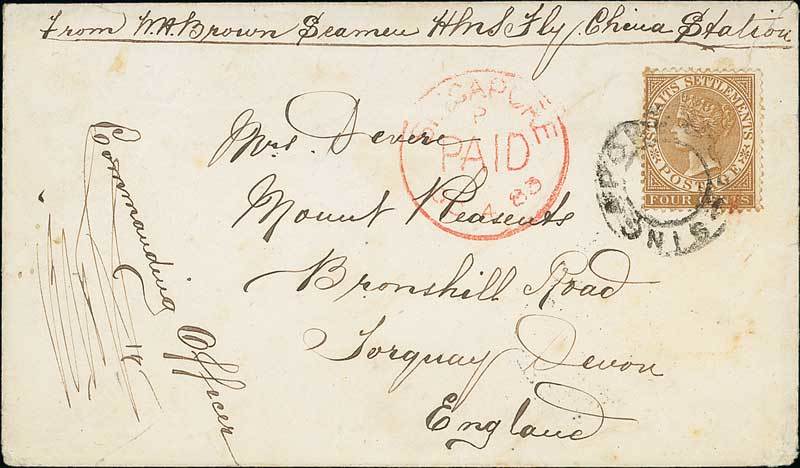 From W.A. Brown Seamen HMS Fly. China Station
SINGAPORE
P
PAID
A 83
STRAITS SETTLEMENTS
POSTAGE
FOUR CENTS
SINGAPORE
Mrs Devere
Mount Pleasents
Bronshill Road
Torquay Devon
England
Commanding Officer
18